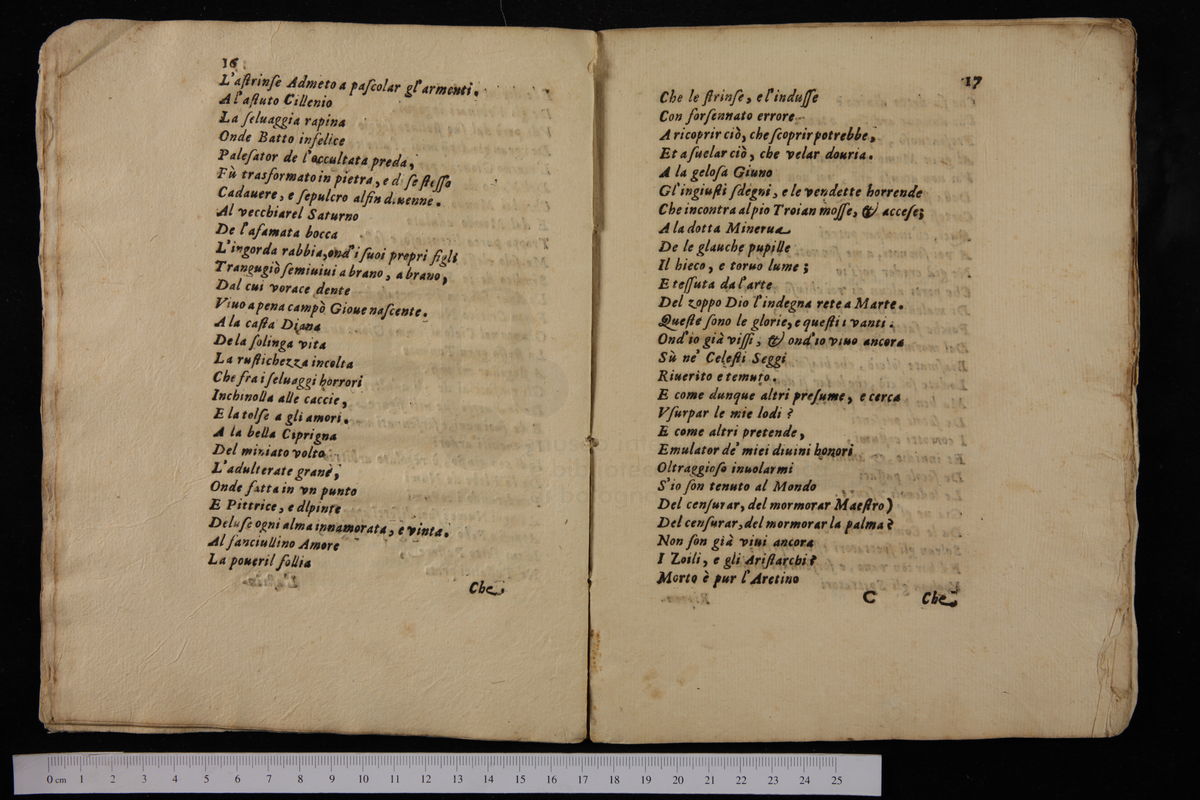 16
L'aſtrinſe Admeto a paſcolar gl'armenti.
A l'aſtuto Cillenio
La ſeluaggia rapina
Onde Batto infelice
Paleſator de l'occultata preda,
Fù trasformato in pietra, e di ſe ſteſſo
Cadauere, e ſepulcro alfin diuenne.
Al vecchiarel Saturno
De l'afamata bocca
L'ingorda rabbia, ond'i ſuoi propri figli
Trangugiò ſemiuiui a brano, a brano,
Dal cui vorace dente
Viuo a pena campò Gioue naſcente.
A la caſta Diana
De la ſolinga vita
La ruſtichezza incolta
Che fra i ſeluaggi horrori
Inchinolla alle caccie,
E la tolſe a gli amori.
A la bella Ciprigna
Del miniato volto
L'adulterate grane,
Onde fatta in vn punto
E Pittrice, e dipinte
Deluſe ogni alma innamorata, e vinta.
Al fanciullino Amore
La poueril follia
Che
17
Che le ſtrinſe, e l'induſſe
Con forſennato errore
A ricoprir ciò, che ſcoprir potrebbe,
Et a ſuelar ciò, che velar douria.
A la geloſa Giuno
Gl'ingiuſti ſdegni, e le vendette horrende
Che incontra al pio Troian moſſe, & acceſe;
A la dotta Minerua
De le glauche pupille
Il bieco, e toruo lume;
E teſſuta da l'arte
Del zoppo Dio l'indegna rete a Marte.
Queſte ſono le glorie, e queſti i vanti.
Ond'io già viſſi, & ond'io viuo ancora
Sù ne' Celeſti Seggi
Riuerito e temuto.
E come dunque altri preſume, e cerca
Vſurpar le mie lodi?
E come altri pretende,
Emulator de' miei diuini honori
Oltraggioſo inuolarmi
S'io ſon tenuto al Mondo
Del cenſurar, del mormorar Maeſtro)
Del cenſurar, del mormorar la palma?
Non ſon già viui ancora
I Zoili, e gli Ariſtarchi?
Morto è pur l'Aretino
C
Che
0 cm 1 2 3 4 5 6 7 8 9 10 11 12 13 14 15 16 17 18 19 20 21 22 23 24 25